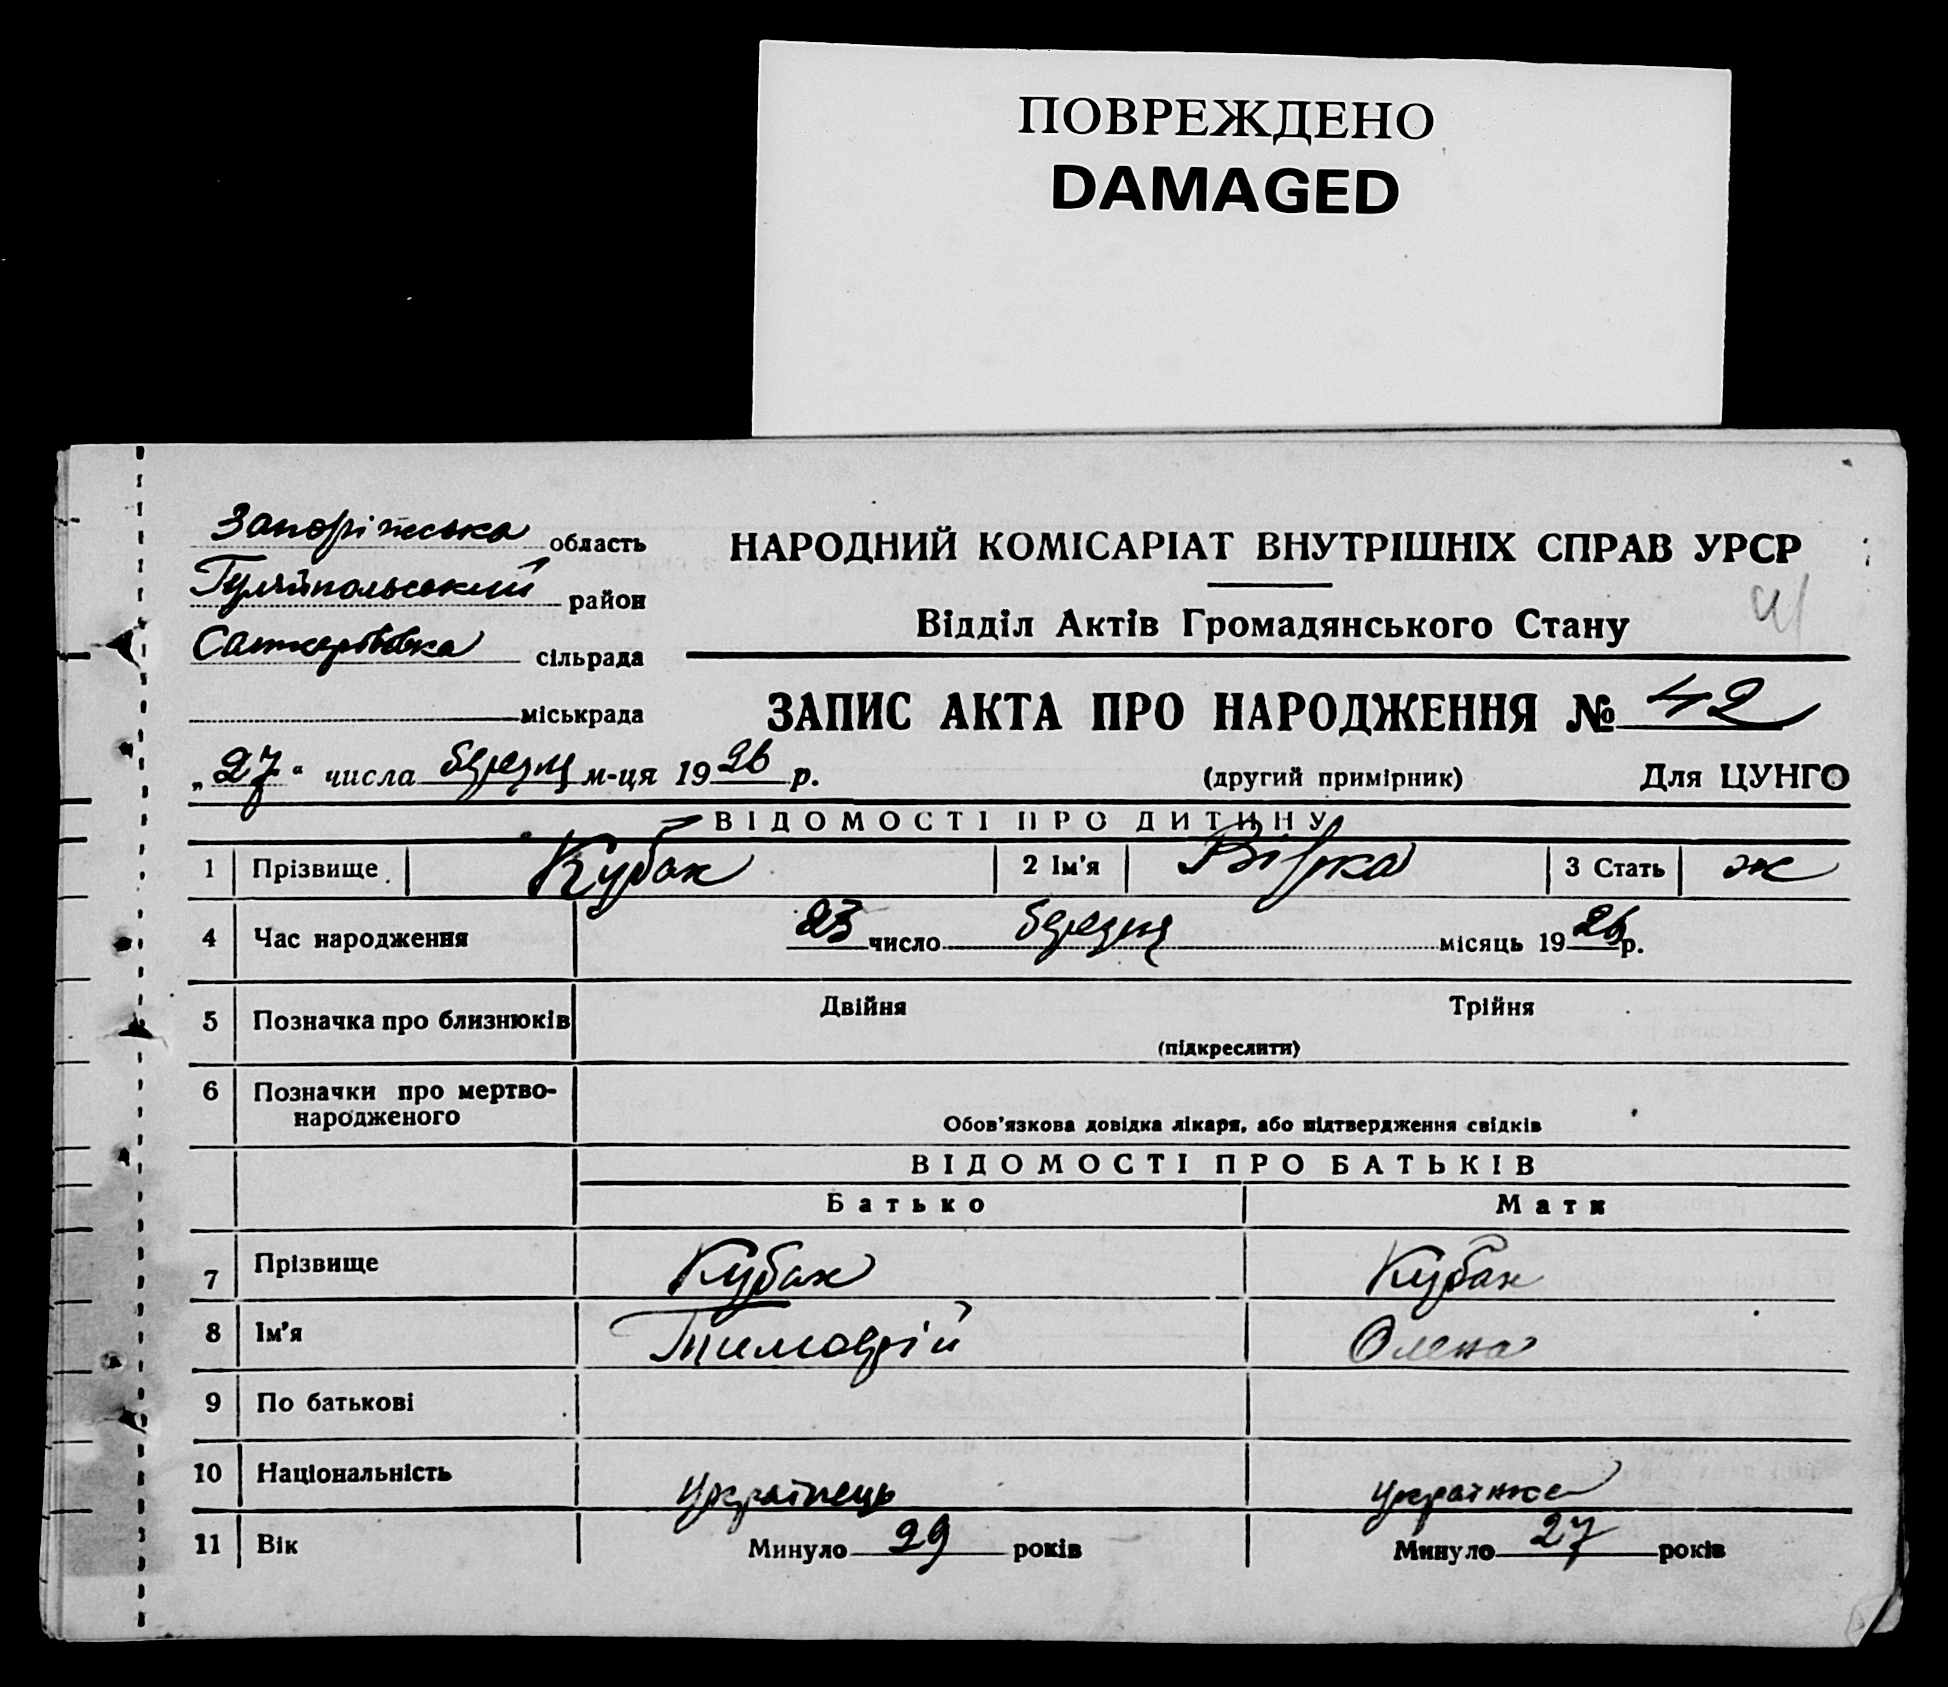 ПОВРЕЖДЕНО
DAMAGED
Запоріжська область
Гуляйпольський район
сільрада
міськрада
НАРОДНИЙ КОМІСАРІАТ ВНУТРІШНІХ СПРАВ УРСР
Відділ Актів Громадянського Стану
ЗАПИС АКТА ПРО НАРОДЖЕННЯ № 42
„27“ числа березня м-ця 1926 р.
(другий примірник) Для ЦУНГО
ВІДОМОСТІ ПРО ДИТИНУ
1 Прізвище Кубак 2 Ім'я Вірка 3 Стать ж
4 Час народження 23 число березня місяць 1926 р.
5 Позначка про близнюків Двійня Трійня
(підкреслити)
6 Позначки про мертво-
народженого
Обов'язкова довідка лікаря, або підтвердження свідків
ВІДОМОСТІ ПРО БАТЬКІВ
Батько Мати
7 Прізвище Кубак Кубак
8 Ім'я Тимофій Олена
9 По батькові
10 Національність Українець Українка
11 Вік Минуло 29 років Минуло 27 років